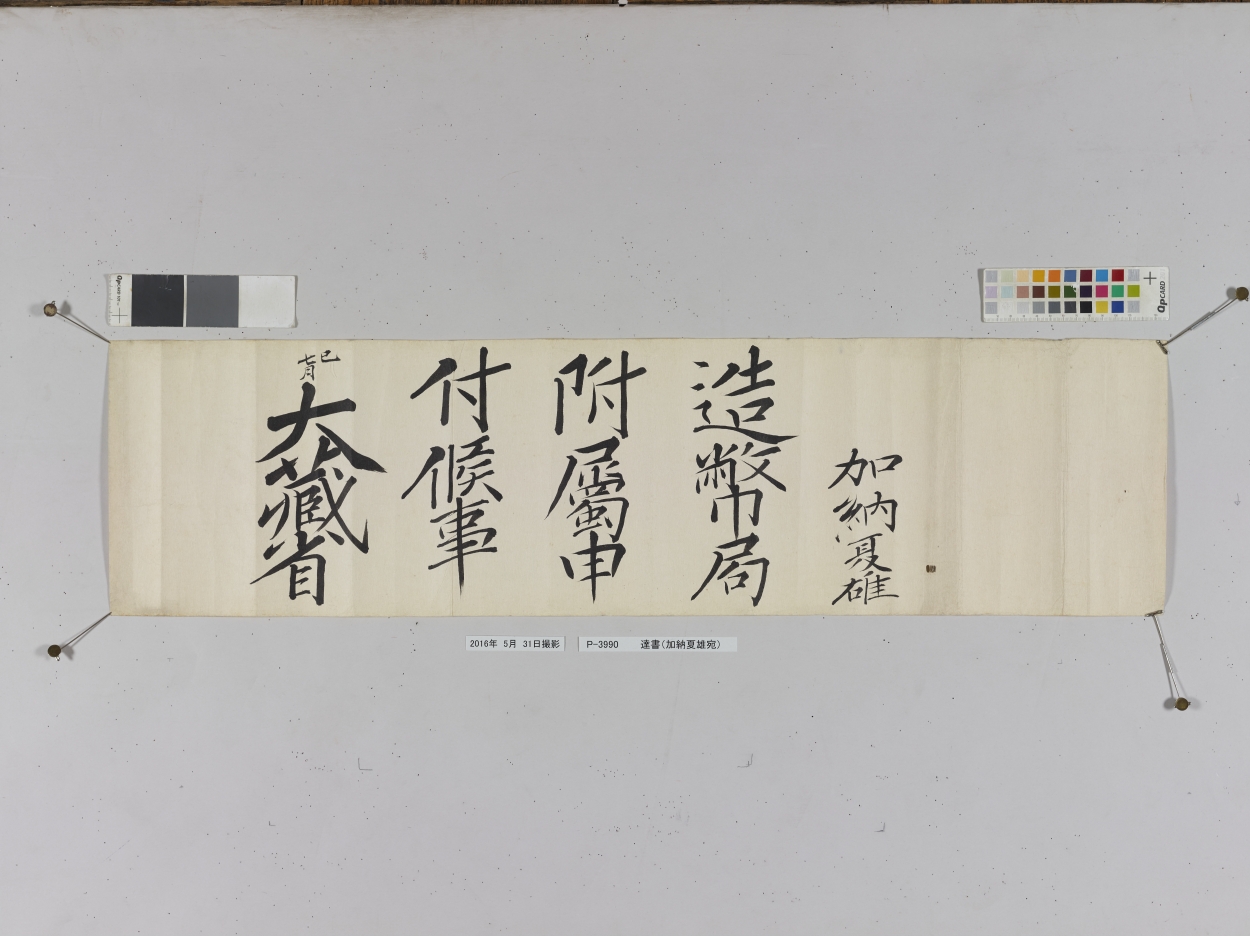 加納夏雄
造幣局
附屬申
付候事
巳
七月
大藏省
2016年 5月 31日撮影
P-3990 達書(加納夏雄宛)
QPCARD